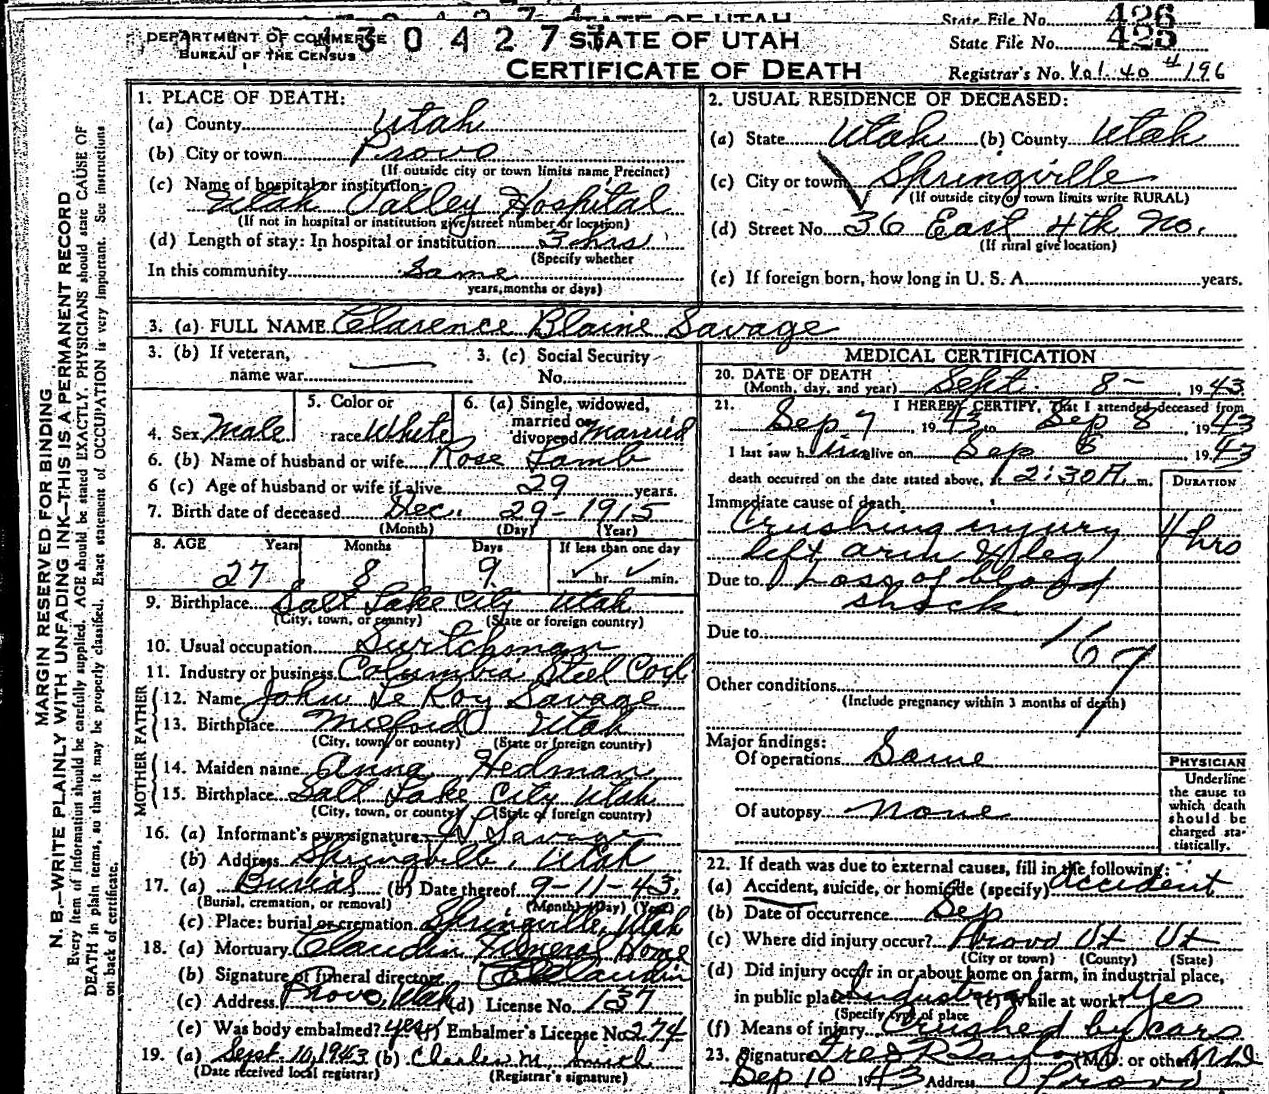 STATE OF UTAH
State File No. 426
DEPARTMENT OF COMMERCE
BUREAU OF THE CENSUS
STATE OF UTAH
State File No. 425
CERTIFICATE OF DEATH
Registrar's No. Vol. 40 # 196
MARGIN RESERVED FOR BINDING
N. B.—WRITE PLAINLY WITH UNFADING INK—THIS IS A PERMANENT RECORD
Every item of information should be carefully supplied. AGE should be stated EXACTLY. PHYSICIANS should state CAUSE OF
DEATH in plain terms, so that it may be properly classified. Exact statement of OCCUPATION is very important. See instructions
on back of certificate.
1. PLACE OF DEATH:
(a) County Utah
(b) City or town Provo
(If outside city or town limits name Precinct)
(c) Name of hospital or institution:
Utah Valley Hospital
(If not in hospital or institution give street number or location)
(d) Length of stay: In hospital or institution 3 hrs
(Specify whether
In this community Same
years, months or days)
2. USUAL RESIDENCE OF DECEASED:
(a) State Utah (b) County Utah
(c) City or town Springville
(If outside city or town limits write RURAL)
(d) Street No. 36 East 4th No.
(If rural give location)
(e) If foreign born, how long in U. S. A. years.
3. (a) FULL NAME Clarence Blaine Savage
3. (b) If veteran,
name war
3. (c) Social Security
No.
4. Sex Male
5. Color or
race White
6. (a) Single, widowed,
married or
divorced Married
6. (b) Name of husband or wife Rose Lamb
6 (c) Age of husband or wife if alive 29 years.
7. Birth date of deceased Dec. 29-1915
(Month) (Day) (Year)
8. AGE Years Months Days If less than one day
27 8 9 hr. min.
9. Birthplace Salt Lake City Utah
(City, town, or county) (State or foreign country)
10. Usual occupation Switchman
11. Industry or business Columbia Steel Corp
FATHER
12. Name John Le Roy Savage
13. Birthplace Milford Utah
(City, town, or county) (State or foreign country)
MOTHER
14. Maiden name Anna Hedman
15. Birthplace Salt Lake City Utah
(City, town, or county) (State or foreign country)
16. (a) Informant's own signature Savage
(b) Address Springville, Utah
17. (a) Burial (b) Date thereof 9-11-43.
(Burial, cremation, or removal) (Month) (Day) (Year)
(c) Place: burial or cremation Springville, Utah
18. (a) Mortuary Claudin Funeral Home
(b) Signature of funeral director Claudin
(c) Address Provo, Utah (d) License No. 137
(e) Was body embalmed? yes (f) Embalmer's License No. 274
19. (a) Sept. 10, 1943 (b) Charles M. Smith
(Date received local registrar) (Registrar's signature)
MEDICAL CERTIFICATION
20. DATE OF DEATH
(Month, day, and year) Sept. 8- 1943
21. I HEREBY CERTIFY, That I attended deceased from
Sep 7, 1943 to Sep 8, 1943
I last saw him alive on Sep 8 1943
death occurred on the date stated above, 12:30 A. m.
DURATION
Immediate cause of death
Crushing injury
left arm & leg
4 hrs
Due to Loss of blood
shock
Due to
167
Other conditions
(Include pregnancy within 3 months of death)
Major findings:
Of operations Same
Of autopsy none
PHYSICIAN
Underline
the cause to
which death
should be
charged sta-
tistically.
22. If death was due to external causes, fill in the following:
(a) Accident, suicide, or homicide (specify) accident
(b) Date of occurrence Sep
(c) Where did injury occur? Provo Ut Ut
(City or town) (County) (State)
(d) Did injury occur in or about home on farm, in industrial place,
in public place Industrial (e) While at work? Yes
(Specify type of place
(f) Means of injury Crushed by cars
23. Signature Fred R Taylor (M.D. or other) M.D
Sep 10 1943 Address Provo